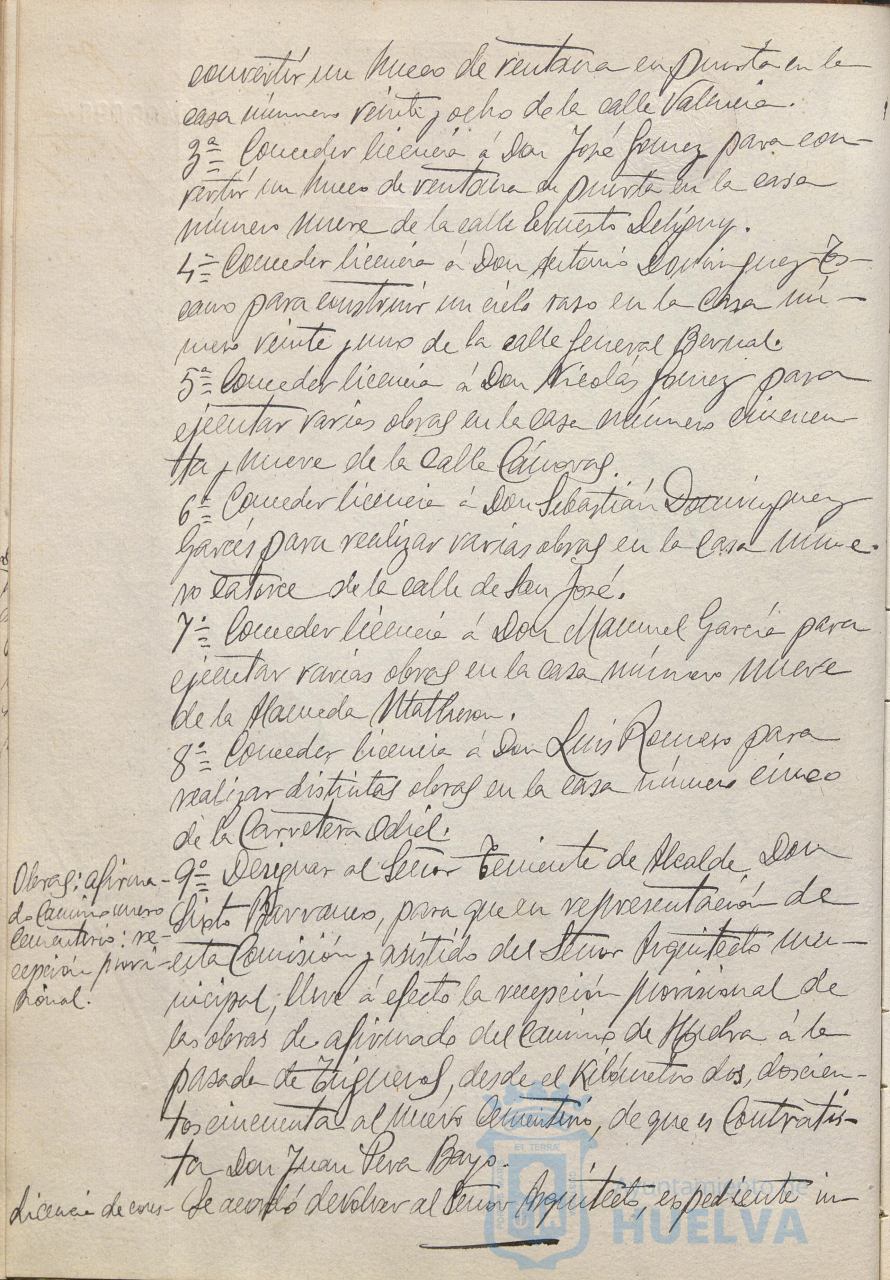 convertir un hueco de ventana en puerta en la
casa número veinte y ocho de la calle Valencia.
3ª Conceder licencia á Don José Gomez para con-
vertir un hueco de ventana en puerta en la casa
número nueve de la calle Ernesto Deligny.
4ª Conceder licencia á Don Antonio Dominguez Tos-
cano para construir un cielo raso en la casa nú-
mero veinte y uno de la calle General Bernal.
5ª Conceder licencia á Don Nicolás Gomez para
ejecutar varias obras en la casa número cincuen-
ta y nueve de la calle Cánovas.
6ª Conceder licencia á Don Sebastián Dominguez
Garcés para realizar varias obras en la casa núme-
ro catorce de la calle de San José.
7ª Conceder licencia á Don Manuel García para
ejecutar varias obras en la casa número nueve
de la Alameda Matheson.
8ª Conceder licencia á Don Luis Romero para
realizar distintas obras en la casa número cinco
de la Carretera Odiel.
Obras: afirma-
do Camino nuevo
Cementerio: re-
cepción provi-
sional.
9º Designar al Señor Teniente de Alcalde Don
Sixto Barranco, para que en representación de
esta Comisión y asistido del Señor Arquitecto mu-
nicipal, lleve á efecto la recepción provisional de
las obras de afirmado del Camino de Huelva á la
pasada de Trigueros, desde el Kilómetro dos, doscien-
tos cincuenta al nuevo Cementerio, de que es Contratis-
ta Don Juan Pera Bayo.
Licencia de cons-
Se acordó devolver al Señor Arquitecto, expediente in-
Ayuntamiento de
HUELVA